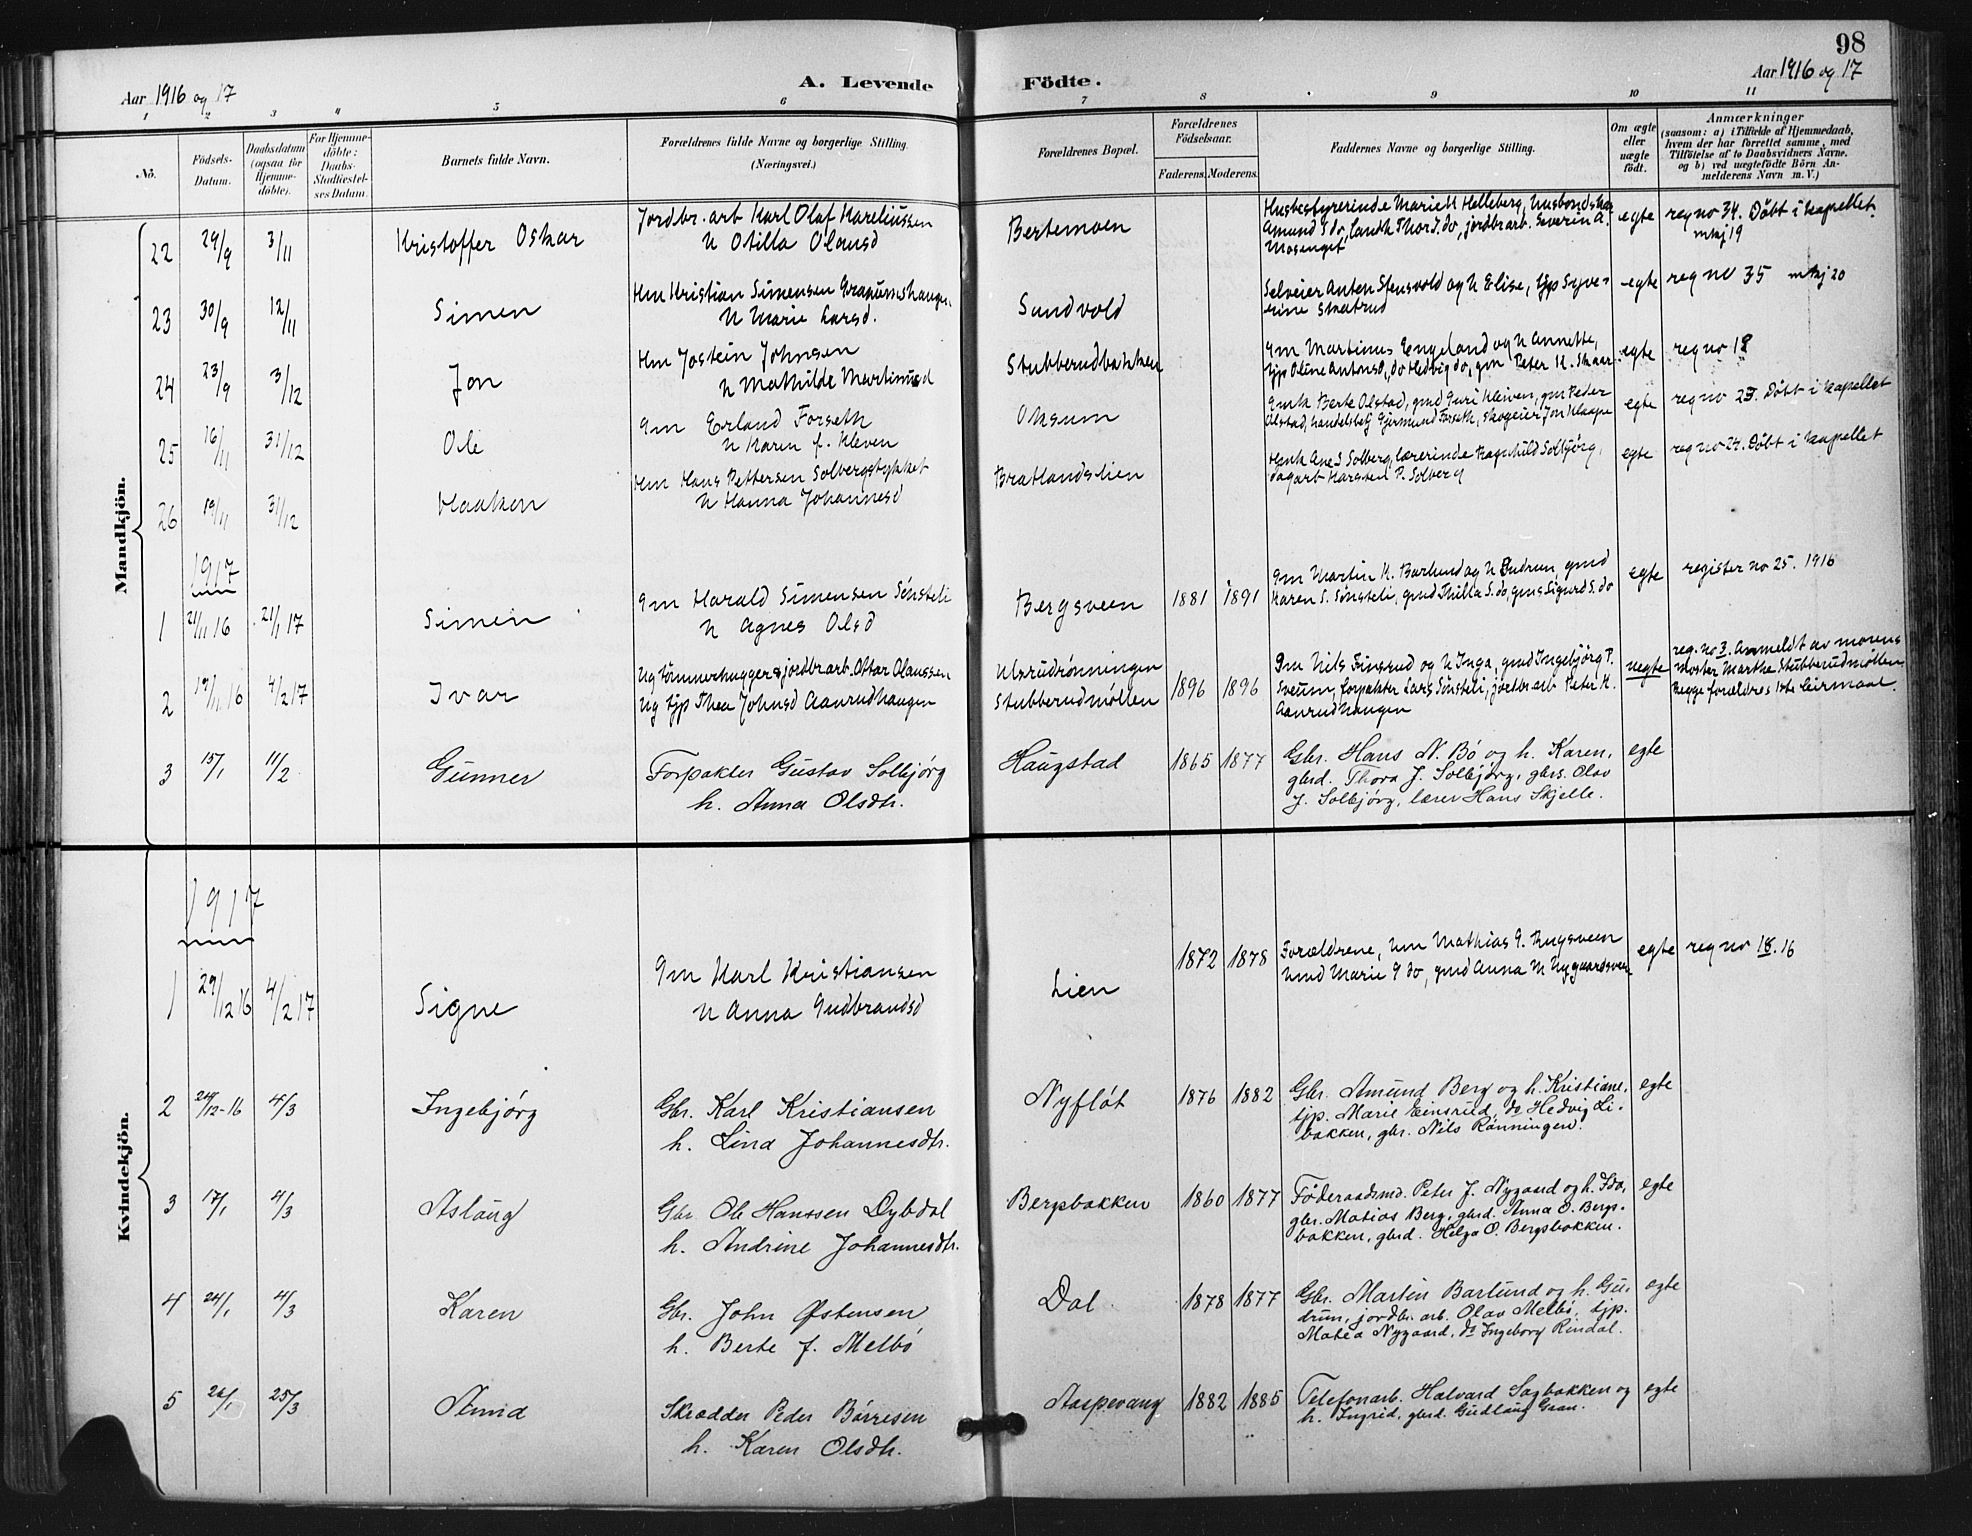 98
Aar 1916 og 17
A. Levende Födte.
Aar 1916 og 17
1 2 3 4 5 6 7 8 9 10 11
No.
Födsels-Datum.
Daabsdatum (ogsaa for Hjemme-döbte).
For Hjemme-döbte: Daabs-Stadfæstel-ses Datum.
Barnets fulde Navn.
Forældrenes fulde Navne og borgerlige Stilling. (Næringsvei.)
Forældrenes Bopæl.
Forældrenes Födselsaar.
Faderens. Moderens.
Faddernes Navne og borgerlige Stilling.
Om ægte eller uægte født.
Anmærkninger
(saasom: a) i Tilfælde af Hjemmedaab,
hvem der har forrettet samme, med
Tilföielse af to Daabsvidners Navne.
og b) ved uægtefödte Börn An-
melderens Navn m. V.)
Mandkjön.
22 29/9 3/11 Kristoffer Oskar
Jordbr. arb Karl Olaf Kareliussen
h Otilla Olausd
Bertemoen
Husbestyrerinde Marie H Helleberg,
Amund S do, landh Thor S. do, jordbrarb. Severin A.
Mosenget
egte
reg no 34. Døbt i kapellet
23 30/9 12/11 Simen
Hm Kristian Simensen
h Marie Larsd.
Sundvold
Selveier Anton Stensvold og h Elise, tjp Syve-
rine Skatrud
egte
reg no 35
24 23/9 3/12 Jon
Hm Jostein Johnsen
h Mathilde Martinusd
Stubberudbakken
Gm Martinus Engeland og h Annette,
tjp Oline Antonsd, do Hedvig do, gm Peter K. Skaar
egte
reg no 18
25 16/11 31/12 Ole
Gm Erland Forseth
h Karen f. Kleven
Oksum
Gmk Berte Olstad, gmd Guri Kleiven, gm Peder
Olstad, handelsbetj Gjermund Forseth, skogeier Jon Klaape
egte
reg no 23. Døbt i kapellet
26 19/11 31/12 Haakon
Hm Hans Pettersen Solbergstykket
h Hanna Johannesd
Bratlandslien
Hmk Ane S Solberg, lærerinde Ragnhild Solbjørg,
dagarb Karsten P. Solberg
egte
reg no 24. Døbt i kapellet
1917
1 21/11 16 21/1 17 Simen
Gm Harald Simensen Sønsteli
h Agnes Olsd
Bergsveen 1881 1891
Gm Martin K. Barlund og h Gudrun, gmd
Karen S. Sønsteli, gmd Thilla S. do, gms Sigurd S. do
egte
register no 25. 1916
2 4/2 17 Ivar
Ug tømmerhugger & jordbrarb. Ottar Olaussen
Ug tjp Thea Johnsd Aanrudhaugen
Ulsrudrønningen
Stubberudmøllen
1896 1896
Gm Nils Einsrud og h Inga, gmd Ingebjørg P.
Sveum, forpakter Lars Sønsteli, jordbr arb Peter K.
Aanrudhaugen
uegte
reg. no 3. Anmeldt av morens
moster Marthe Stubberudmøllen
Begge forældres 1ste leirmaal.
3 15/1 11/2 Gunner
Forpakter Gustav Solbjørg
h. Anna Olsdtr.
Haugstad 1865 1877
Gbr. Hans N. Bø og h. Karen,
gbrd. Thora J. Solbjørg, gbrs. Olav
J. Solbjørg, lærer Hans Skjelle.
egte
Kvindekjön.
1917
1 29/12 16 4/2 17 Signe
Gm Karl Kristiansen
h Anna Gudbrandsd
Lien
1872 1878
Forældrene, hm Mathias G. Bugsveen
hmd Marie G do, gmd Anna M Nygaardsveen
egte
reg no 18. 16
2 24/12-16 4/3 Ingebjörg
Gbr. Karl Kristiansen
h. Lina Johannesdtr.
Nyfløt 1876 1882
Gbr. Amund Berg og h. Kristiane,
tjp. Marie Einsrud, do Hedvig Li-
bakken, gbr. Nils Rønningen.
egte
3 17/1 4/3 Aslaug
Gbr. Ole Hanssen Dybdal
h. Andrine Johannesdtr.
Bergsbakken 1860 1877
Föderaadsmd. Peter J. Nygaard og h. Ida,
gbr. Matias Berg, gbrd. Anna O. Bergs-
bakken, gbrd. Helga O. Bergsbakken.
egte
4 24/1 4/3 Karen
Gbr. John Østensen
h. Berte f. Melbø
Dal 1878 1877
Gbr. Martin Barlund og h. Gu-
drun, jordbr. arb. Olav Melbø, tjp.
Matea Nygaard, do Ingeborg Rindal.
egte
5 25/3 Anna
Skrædder Peder Børresen
h. Karen Olsdtr.
Aaspevang 1882 1885
Telefonarb. Halvard Sagbakken og
h. Ingrid, gbrd. Gudlaug Gran.
egte